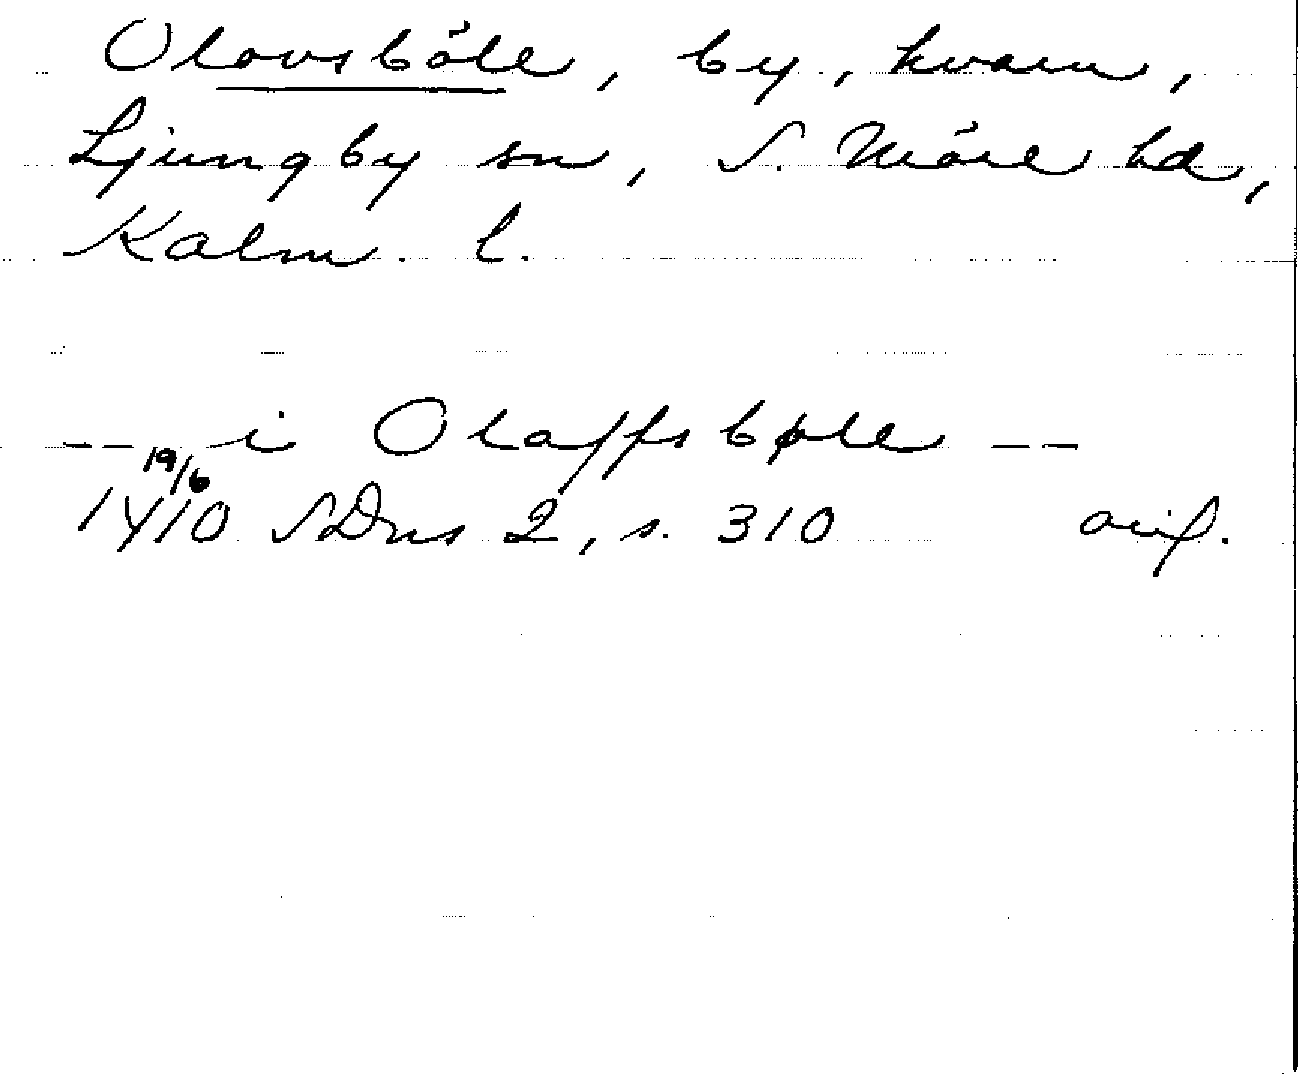 Olovsböle, by, kvarn,
Ljungby sn, S. Möre hd,
Kalm. l.
-- i Olaffsbøle --
19/6
1410 SDns 2, s. 310 orig.